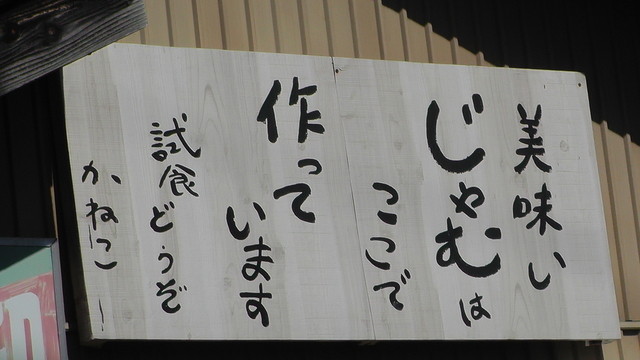 美味い
じゃむは
ここで
作って
います
試食どうぞ
かねこ